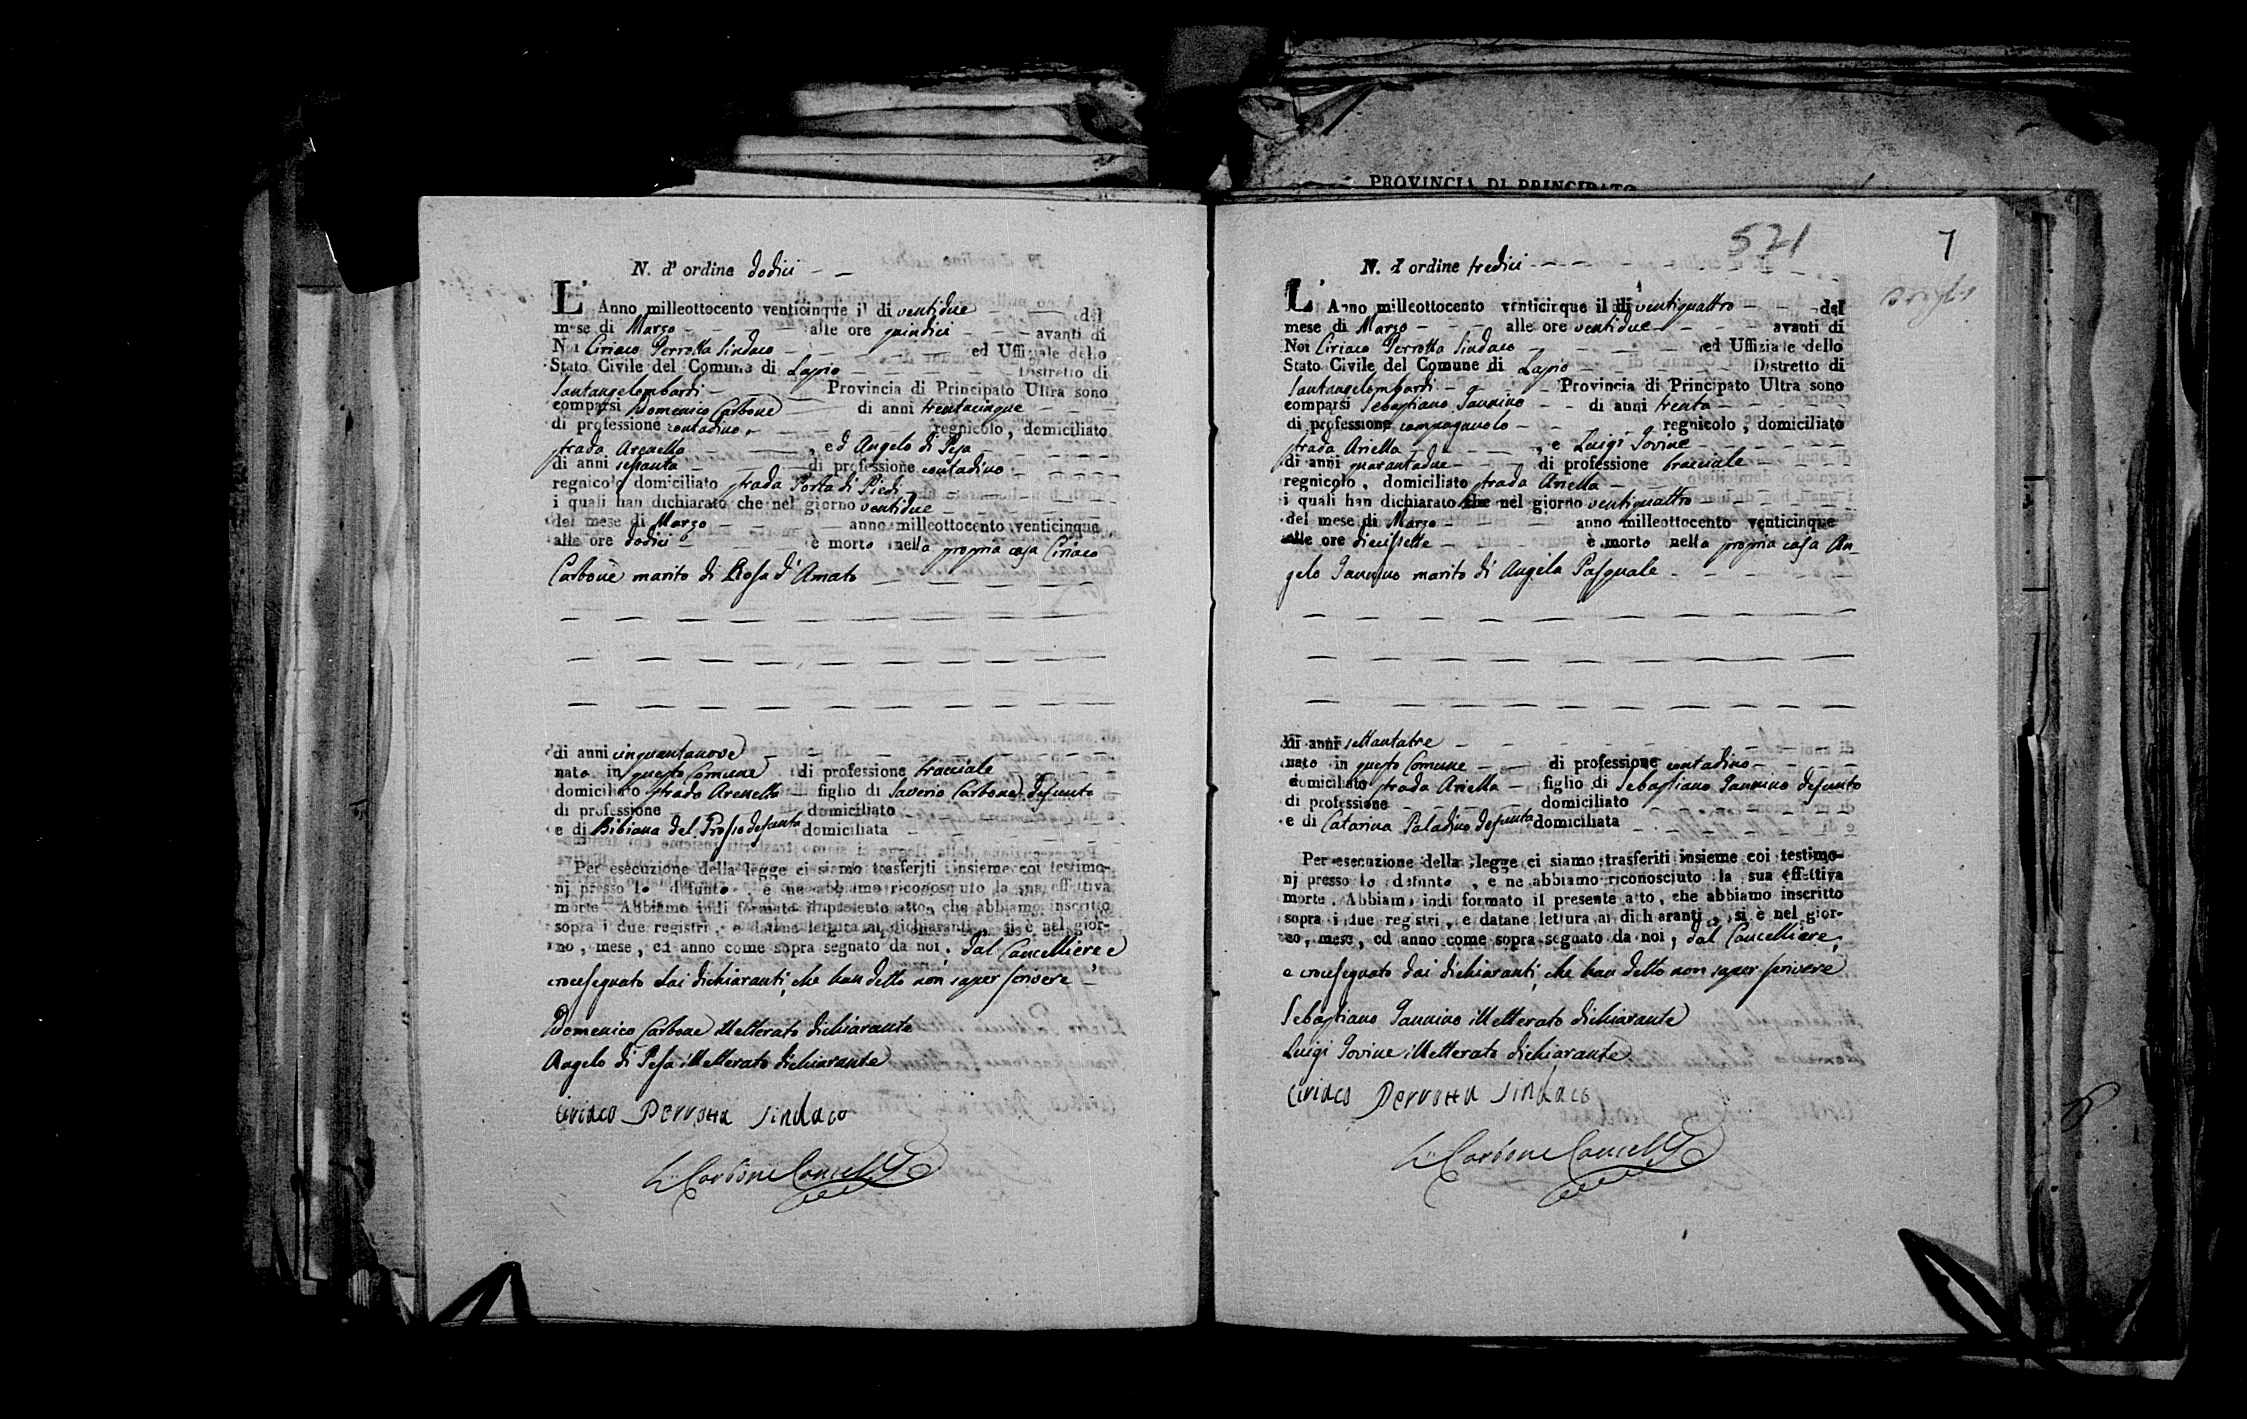 PROVINCIA DI PRINCIPATO
N. d' ordine dodici
L' Anno milleottocento venticinque il di ventidue del
mese di Marzo alle ore quindici avanti di
Noi Ciriaco Perrotta Sindaco ed Uffiziale dello
Stato Civile del Comune di Lapio Distretto di
Santangelombardi Provincia di Principato Ultra sono
comparsi Domenico Carbone di anni trentacinque
di professione contadino, regnicolo, domiciliato
strada Arenella, ed Angelo di Pesa
di anni sessanta di professione contadino
regnicolo domiciliato strada Porta di Piedi
i quali han dichiarato che nel giorno ventidue
del mese di Marzo anno milleottocento venticinque
alle ore dodici è morto nella propria casa Ciriaco
Carbone marito di Rosa d'Amato
di anni cinquantanove
nato in questo Comune di professione bracciale
domiciliato strada Arenella figlio di Saverio Carbone defunto
di professione domiciliato
e di Bibiana del Prosio defunta domiciliata
Per esecuzione della legge ci siamo trasferiti insieme coi testimo-
nj presso lo defunto, e ne abbiamo riconosciuto la sua effettiva
morte. Abbiamo indi formato il presente atto, che abbiamo inscritto
sopra i due registri, e datane lettura ai dichiaranti, si è nel gior-
no, mese, ed anno come sopra segnato da noi, dal Cancelliere e
crocesegnato dai dichiaranti, che han detto non saper scrivere
Domenico Carbone illetterato dichiarante
Angelo di Pesa illetterato dichiarante
Ciriaco Perrotta Sindaco
Carbone Cancell
521
7
N. d' ordine tredici
L' Anno milleottocento venticinque il di ventiquattro del
mese di Marzo alle ore ventidue avanti di
Noi Ciriaco Perrotta Sindaco ed Uffiziale dello
Stato Civile del Comune di Lapio Distretto di
Santangelombardi Provincia di Principato Ultra sono
comparsi Sebastiano Iannino di anni trenta
di professione campagnolo regnicolo, domiciliato
strada Ariella, e Luigi Iovine
di anni quarantadue di professione bracciale
regnicolo, domiciliato strada Ariella
i quali han dichiarato che nel giorno ventiquattro
del mese di Marzo anno milleottocento venticinque
alle ore diecissette è morto nella propria casa An-
gelo Iannino marito di Angela Pasquale
di anni settantatre
nato in questo Comune di professione contadino
domiciliato strada Ariella figlio di Sebastiano Iannino defunto
di professione domiciliato
e di Catarina Paladino defunta domiciliata
Per esecuzione della legge ci siamo trasferiti insieme coi testimo-
nj presso lo defunto, e ne abbiamo riconosciuto la sua effettiva
morte. Abbiamo indi formato il presente atto, che abbiamo inscritto
sopra i due registri, e datane lettura ai dichiaranti, si è nel gior-
no, mese, ed anno come sopra segnato da noi, dal Cancelliere,
e crocesegnato dai dichiaranti, che han detto non saper scrivere
Sebastiano Iannino illetterato dichiarante
Luigi Iovine illetterato dichiarante
Ciriaco Perrotta Sindaco
Carbone Cancell